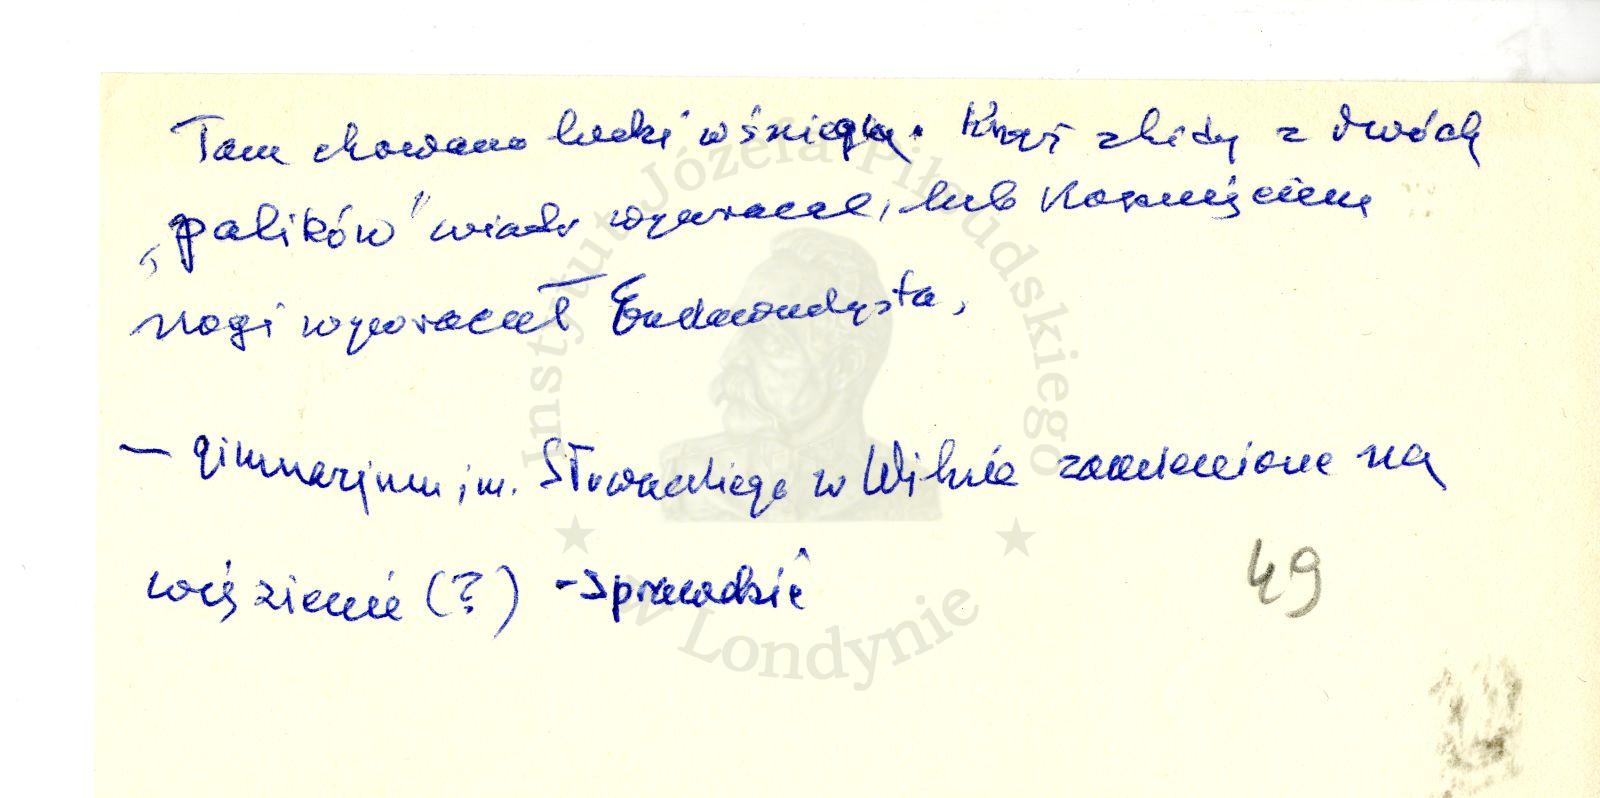 Tam chowano ludzi w śniegu. Krzyż zbity z dwóch
„palików" wiatr wywracał, lub kopnięciem
nogi wywracał Endmondysta,
— gimnazjum im. Słowackiego w Wilnie zamienione na
więzienie (?) - sprawdzić
49
Instytut Józefa Piłsudskiego
w Londynie